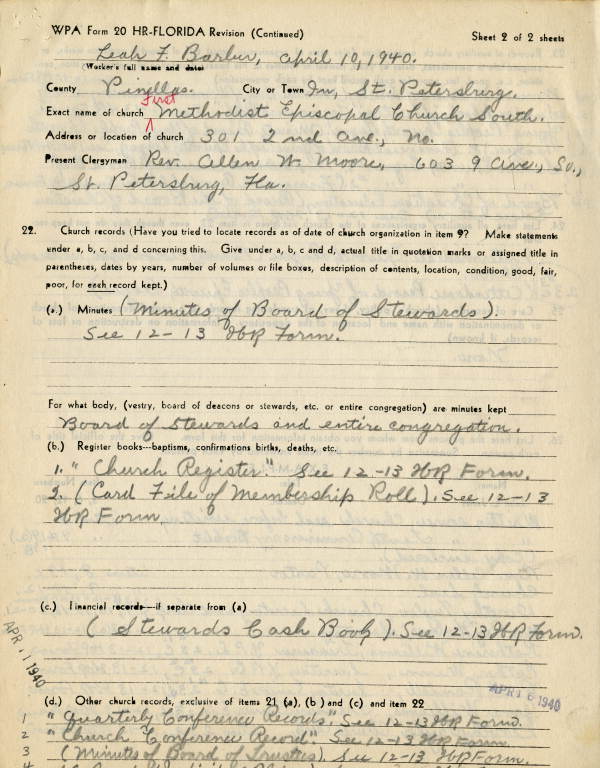 WPA Form 20 HR-FLORIDA Revision (Continued) Sheet 2 of 2 sheets
Leah F. Barber, April 10, 1940.
(Worker's full name and date)
County Pinellas. City or Town In, St. Patersburg.
First
Exact name of church Methodist Episcopal Church South.
Address or location of church 301 2nd Ave., No.
Present Clergyman Rev. Allen W. Moore, 603 9 Ave., So.,
St. Petersburg, Fla.
22. Church records (Have you tried to locate records as of date of church organization in item 9? Make statements
under a, b, c, and d concerning this. Give under a, b, c and d, actual title in quotation marks or assigned title in
parentheses, dates by years, number of volumes or file boxes, description of contents, location, condition, good, fair,
poor, for each record kept.)
(a.) Minutes (Minutes of Board of Stewards).
See 12-13 HR Form.
For what body, (vestry, board of deacons or stewards, etc. or entire congregation) are minutes kept
Board of Stewards and entire congregation.
(b.) Register books---baptisms, confirmations births, deaths, etc.
1. "Church Register". See 12-13 HR Form.
2. (Card File of Membership Roll). See 12-13
HR Form.
(c.) Financial records---if separate from (a)
(Stewards Cash Book). See 12-13 HR Form.
APR 11 1940
APR 16 1940
(d.) Other church records, exclusive of items 21 (a), (b) and (c) and item 22
1 "Quarterly Conference Records". See 12-13 HR Form.
2 "Church Conference Record" See 12-13 HR Form.
3 (Minutes of Board of Trustees). See 12-13 HR Form.
4